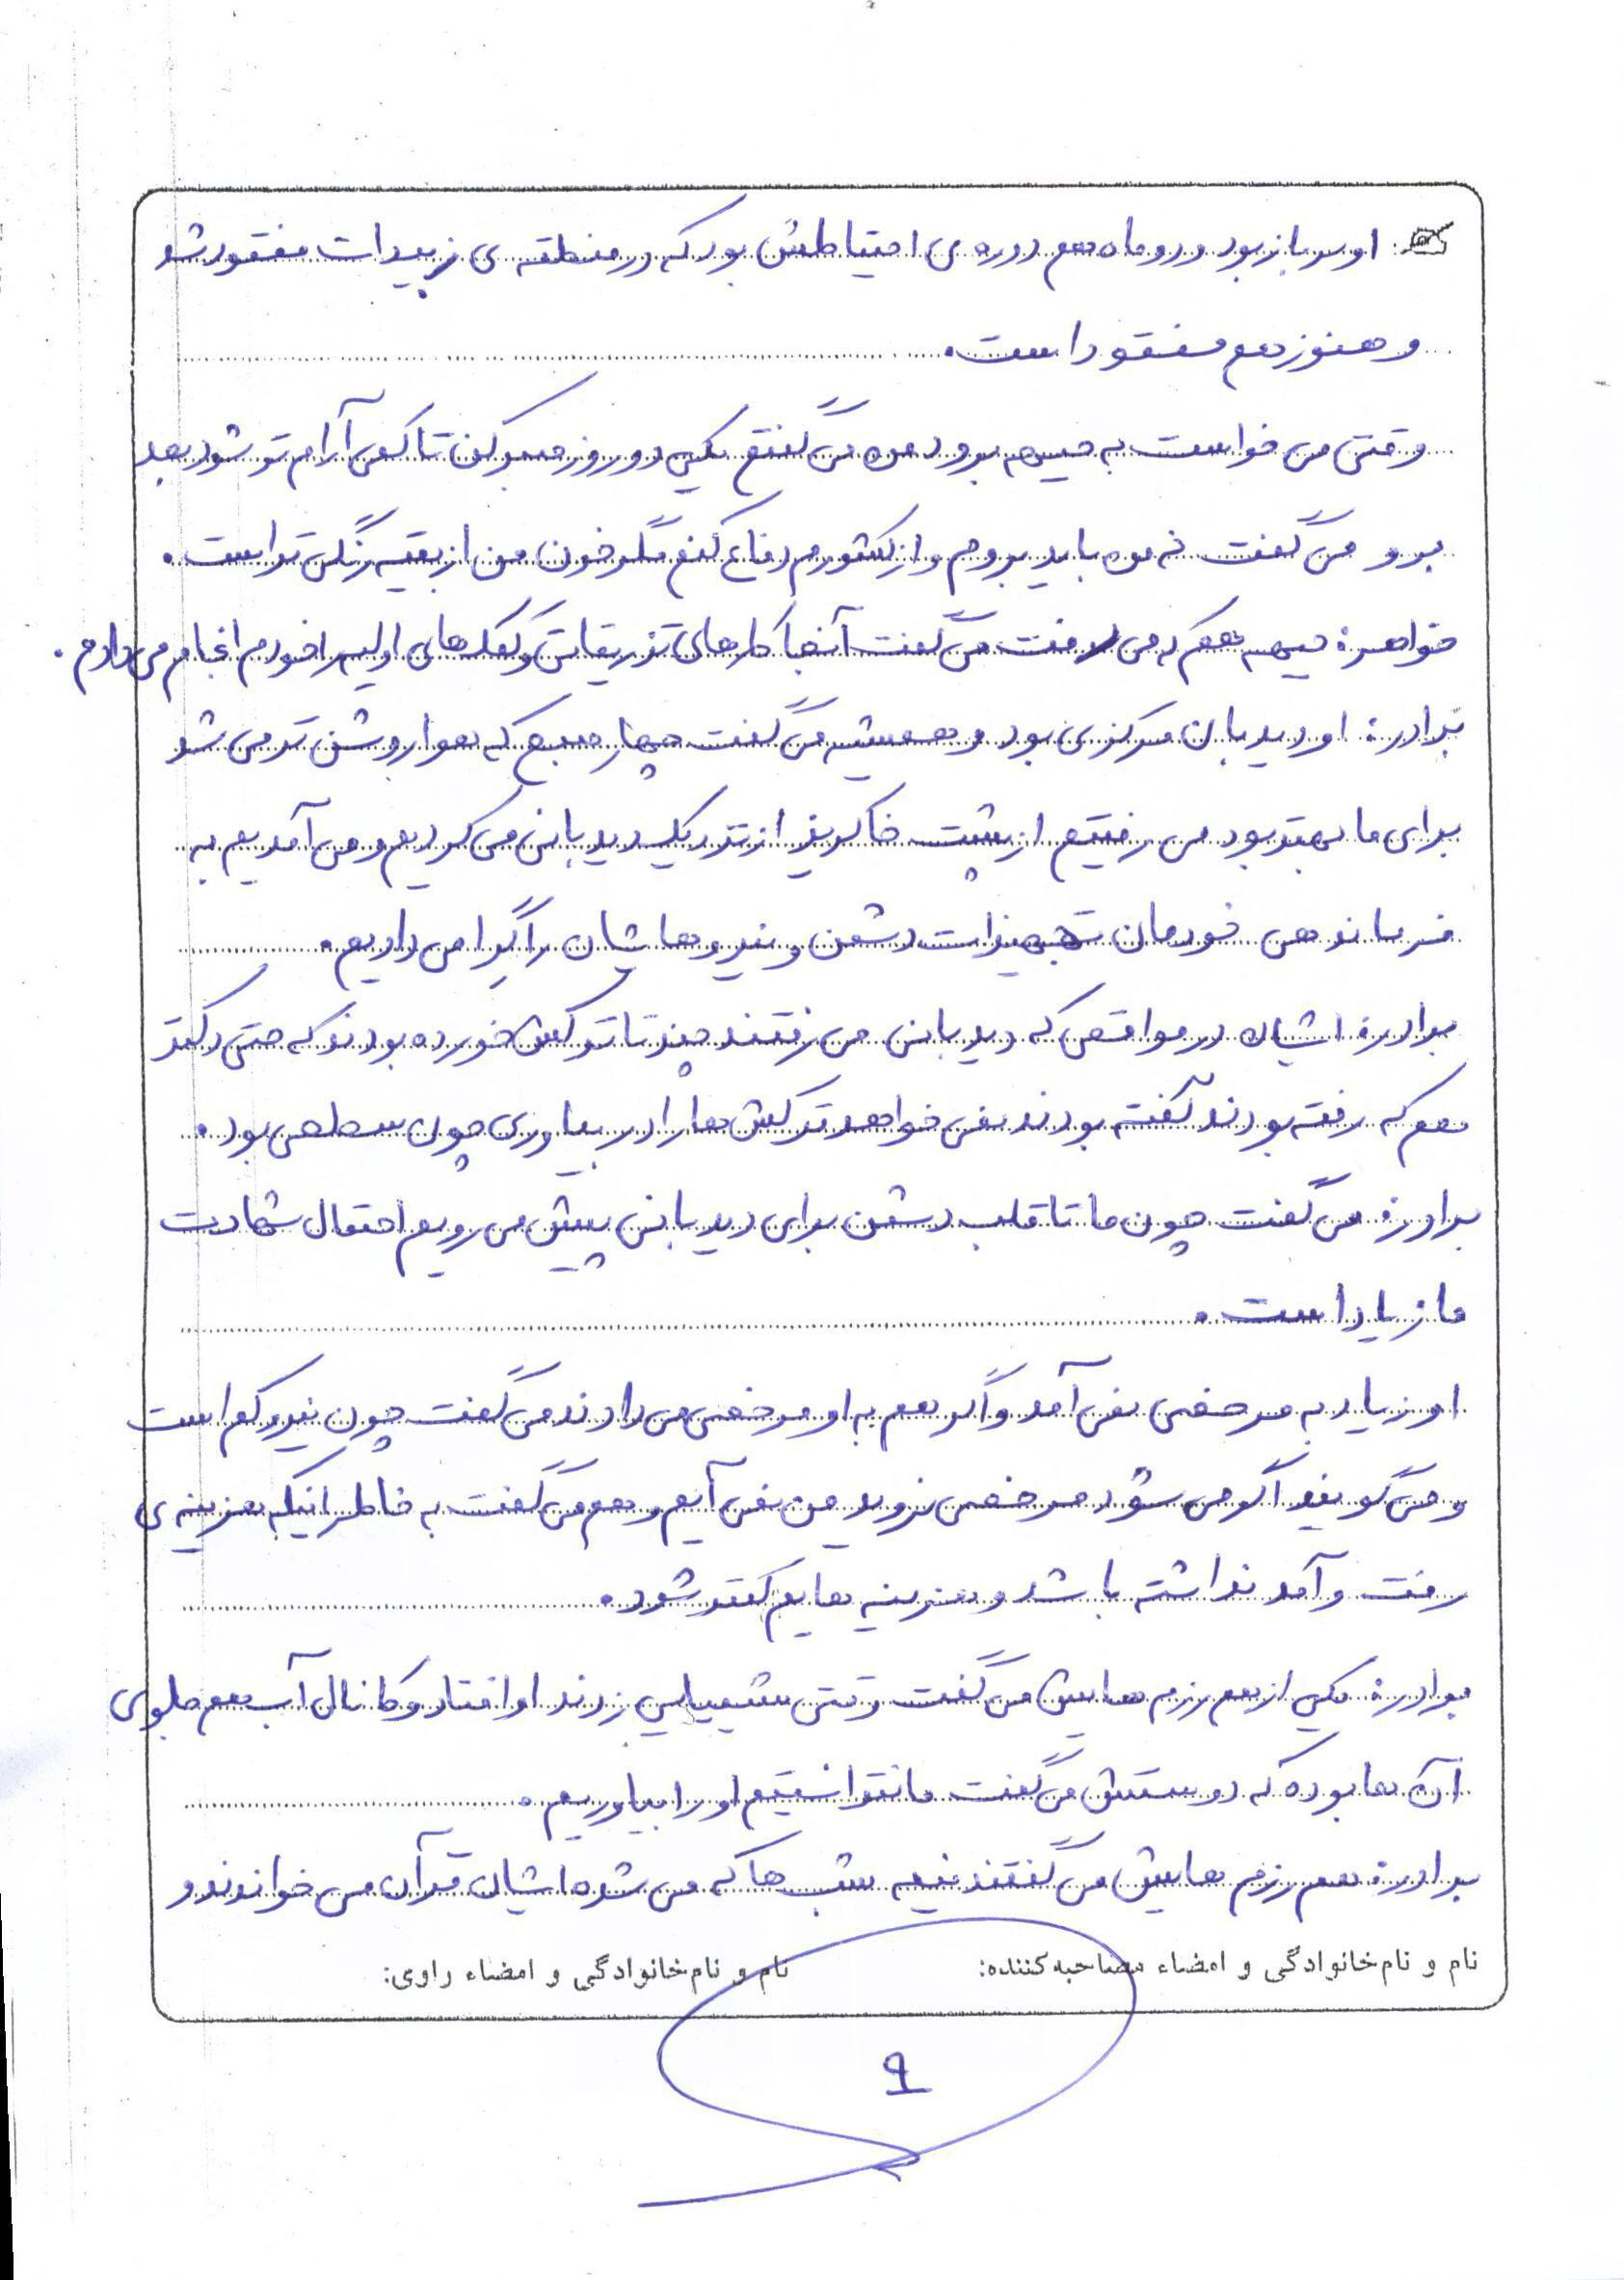 او سرباز بود و دو ماه هم دوره ی احتیاطش بود که در منطقه ی زبیدات مفقود شد
و هنوز هم مفقود است.
وقتی می خواست به جبهه برود من می گفتم یکی دو روز صبر کن تا کمی آرام تر شود بعد
برو می گفت نه من باید بروم و از کشورم دفاع کنم مگر خون من از بقیه رنگی تر است.
خواهر: جبهه هم که می رفت می گفت آنجا کارهای تزریقاتی و کمک های اولیه را خودم انجام می دادم.
برادر: او دیدبان مرکزی بود و همیشه می گفت چهار صبح که هوا روشن تر می شد
برای ما بهتر بود می رفتیم از پشت خاکریز از نزدیک دیدبانی می کردیم و می آمدیم به
فرماندهی خودمان تجهیزات دشمن و نیروهایشان را گرا می دادیم.
برادر: ایشان در مواقعی که دیدبانی می رفتند چند تا ترکش خورده بودند که حتی دکتر
هم که رفته بودند گفته بودند نمی خواهد ترکش ها را در بیاوری چون سطحی بود.
برادر: می گفت چون ما تا قلب دشمن برای دیدبانی پیش می رویم احتمال شهادت
ما زیاد است.
او زیاد به مرخصی نمی آمد و اگر هم به او مرخصی می دادند می گفت چون نیرو کم است
و می گویند اگر می شود مرخصی نروید من نمی آیم و هم می گفت به خاطر اینکه هزینه ی
رفت و آمد نداشته باشد و هزینه هایم کمتر شود.
برادر: یکی از هم رزم هایش می گفت وقتی شیمیایی زدند او افتاد و کانال آب هم جلوی
آن ها بوده که دوستش می گفت ما نتوانستیم او را بیاوریم.
برادر: هم رزم هایش می گفتند نیمه شب ها که می شده ایشان قرآن می خواندند و
نام و نام خانوادگی و امضاء مصاحبه کننده: نام و نام خانوادگی و امضاء راوی: